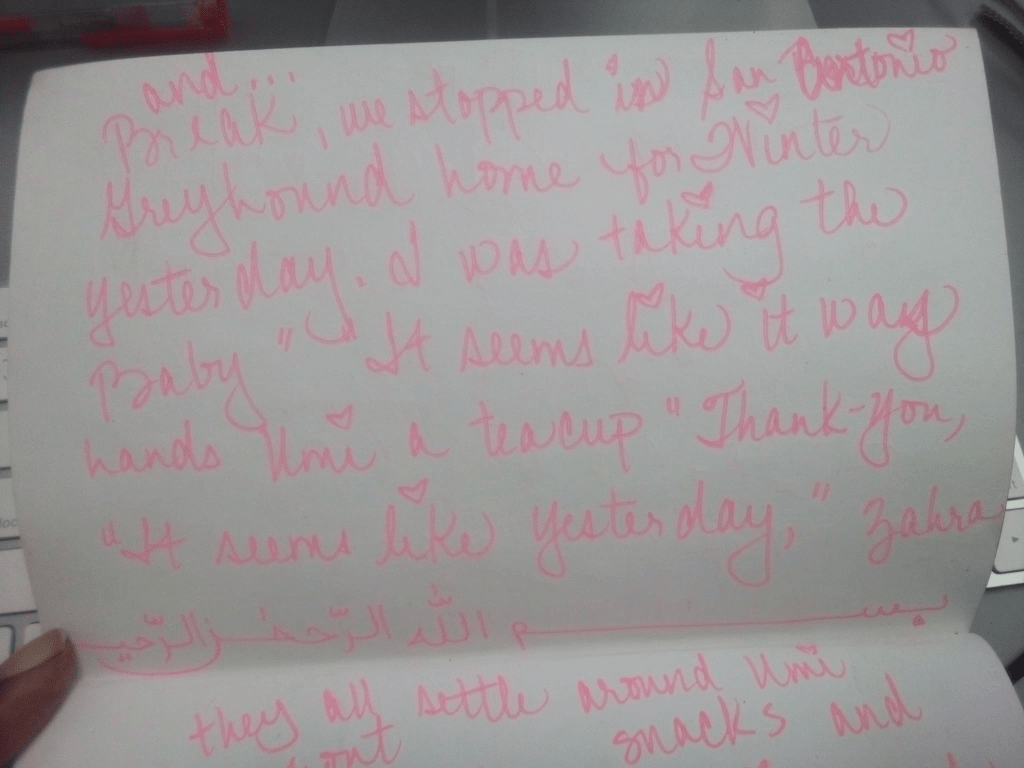 and...
Break, we stopped in San Antonio
Greyhound home for Winter
yesterday. I was taking the
Baby" "It seems like it was
hands Umi a teacup "Thank-You,
"It seems like yesterday," Zahra
بسم الله الرّحمٰن الرّحيم
they all settle around Umi
snacks and